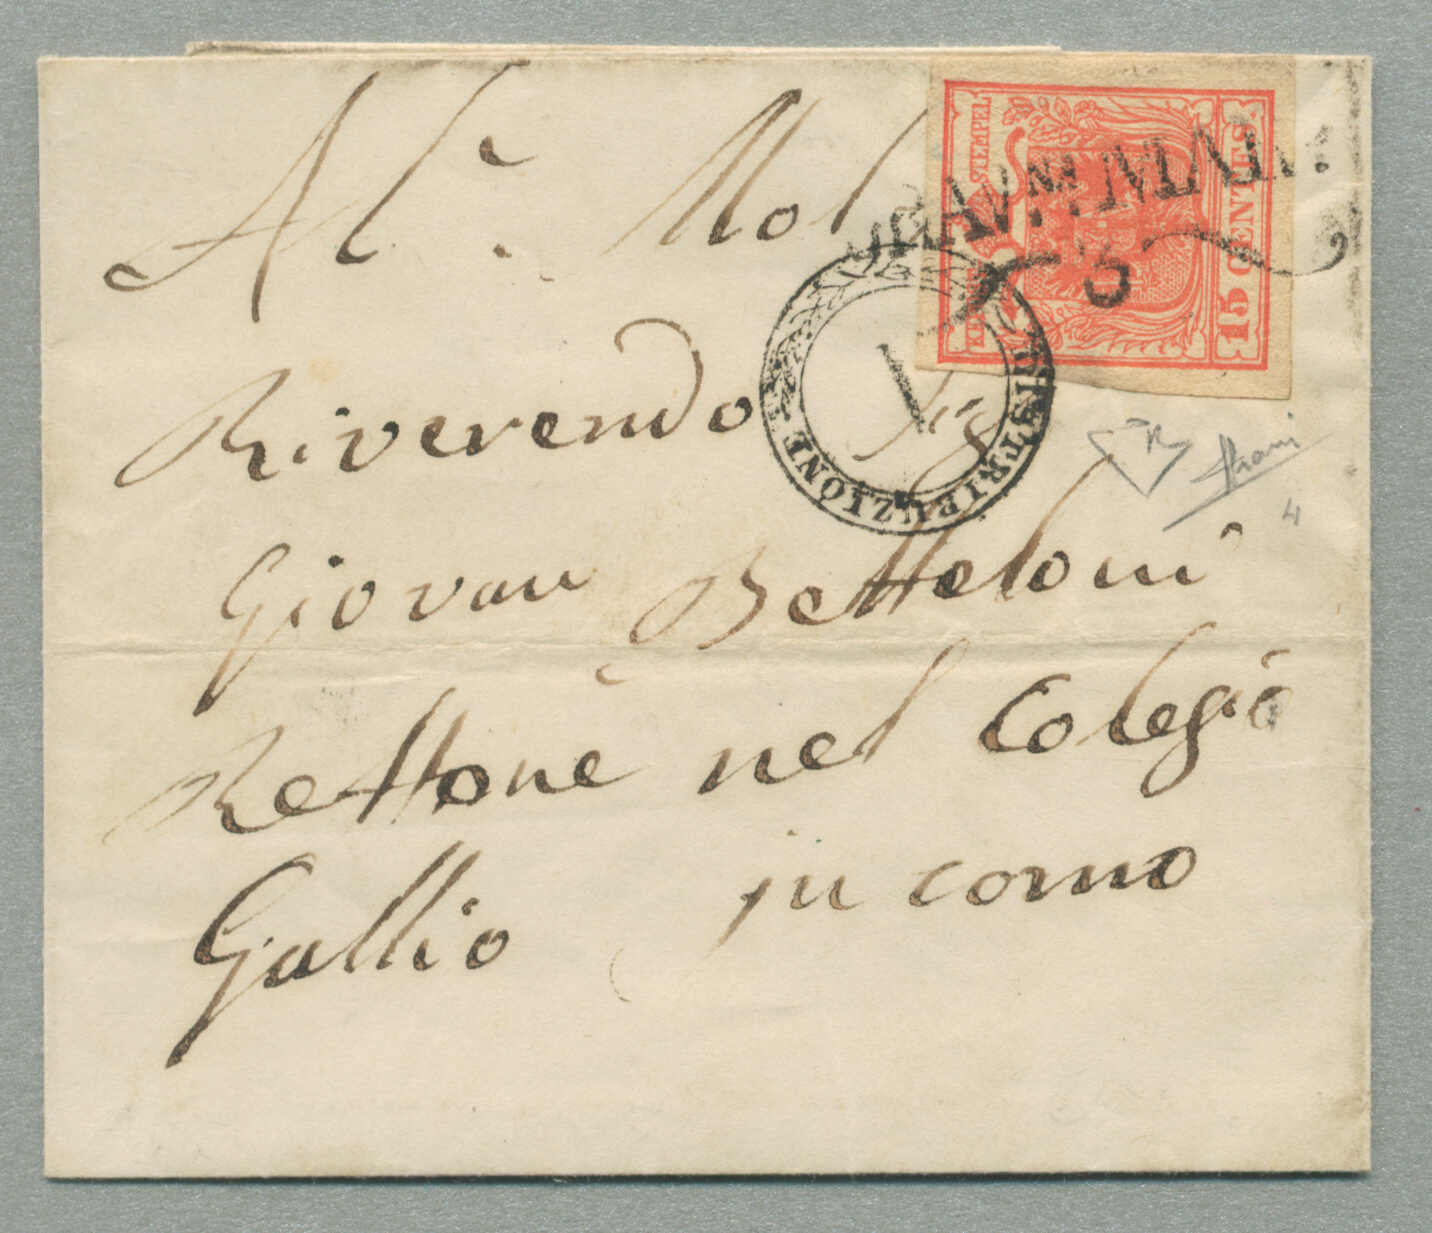 Al. Mol
Riverendo Sig
Giovan Betteloni
Rettore nel Colegio
Gallio in como
KEMPEL
15 CENTES
DISTRIBUZIONE I